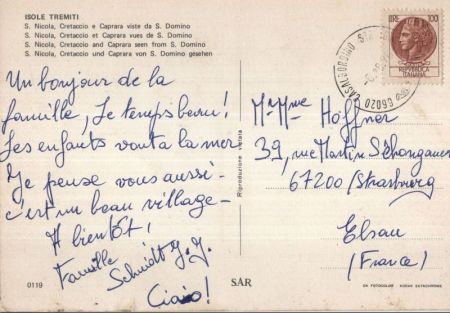 ISOLE TREMITI
S. Nicola, Cretaccio e Caprara viste da S. Domino
S. Nicola, Cretaccio et Caprara vues de S. Domino
S. Nicola, Cretaccio and Caprara seen from S. Domino
S. Nicola, Cretaccio und Caprara von S. Domino gesehen
Un bonjour de la
famille, le temps beau!
Les enfants vont a la mer
Je pense vous aussi -
c'est un beau village -
A bientôt!
Famille Schmidt J.J.
Ciao!
0119
SAR
Riproduzione vietata
LIRE 100
REPUBBLICA ITALIANA
66020 CASALBORDINO
Mr Mme Hoffner
39, rue Martin Schongauer
67200 (Strasbourg
Elsau
(France)
EN FOTOCOLOR KODAK EKTACHROME